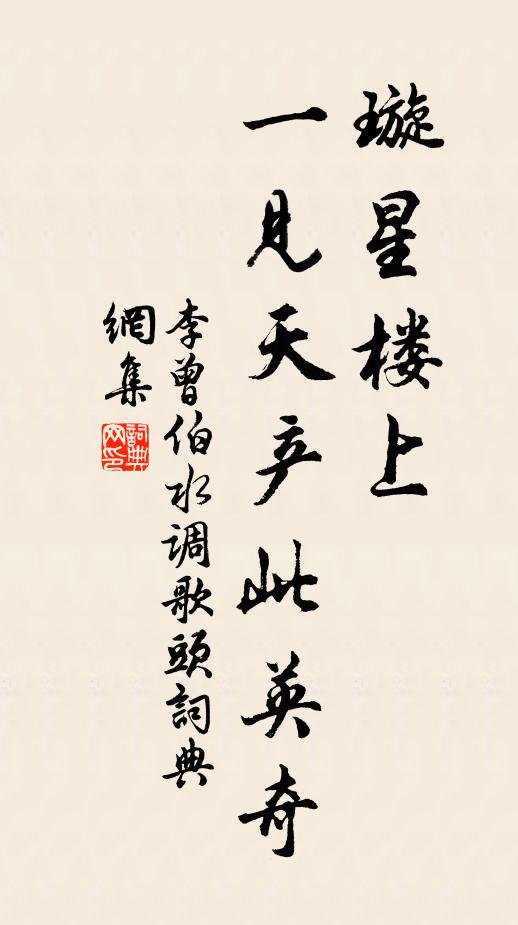 璇星楼上
一见天产此英奇
李曾伯水调歌头詞典
網集
詞典網印